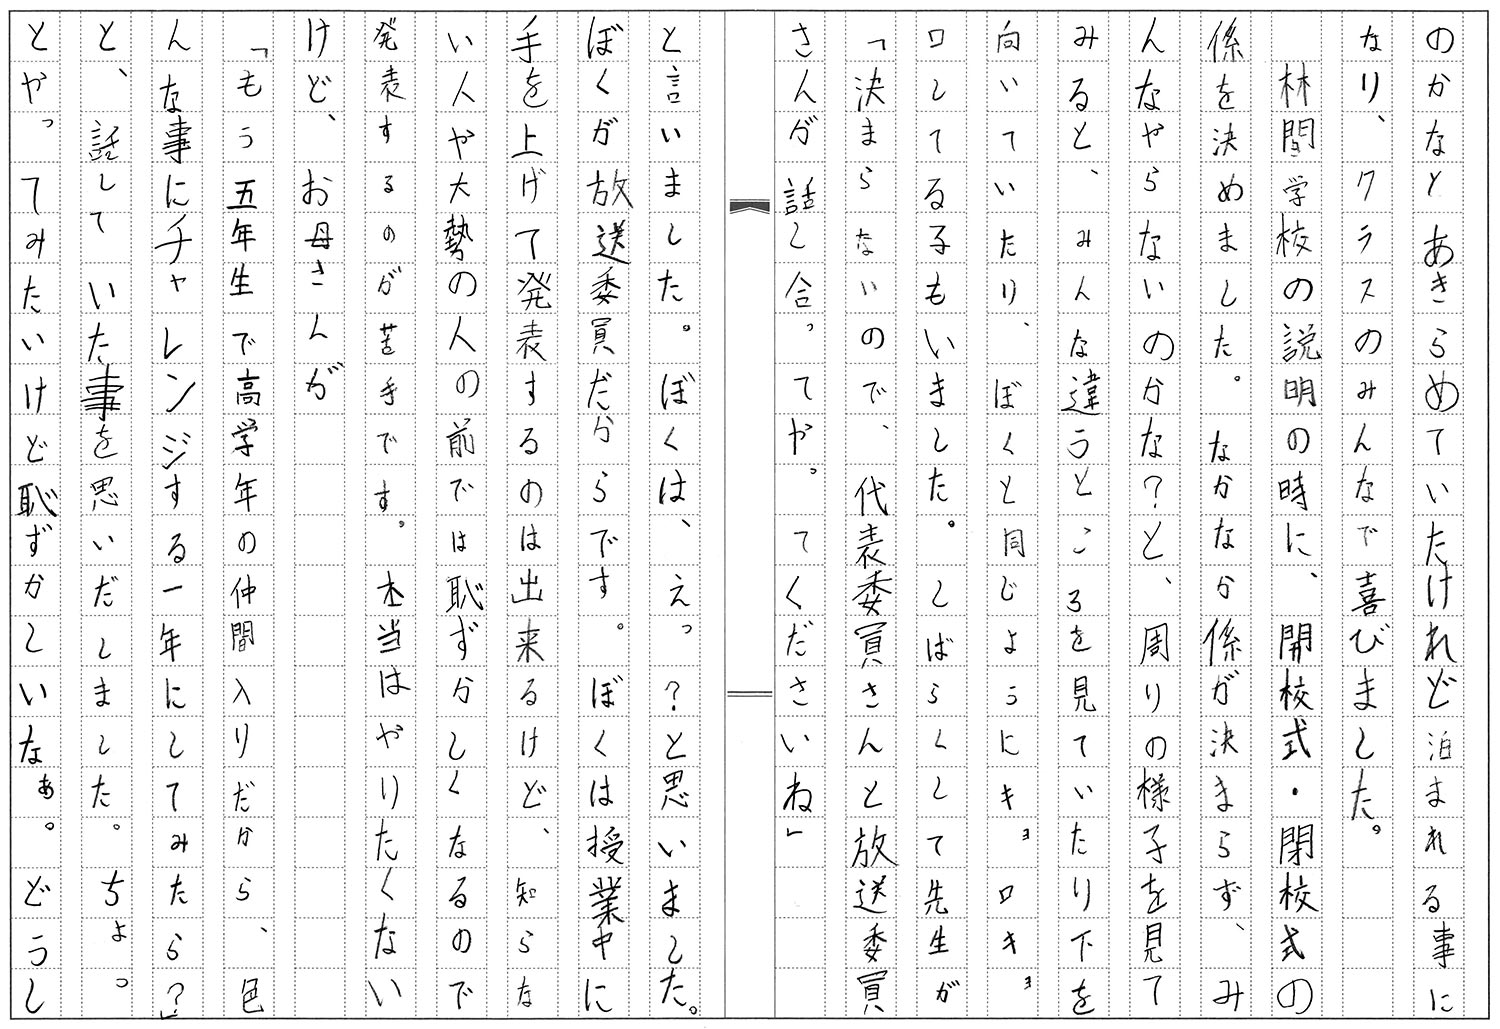 のかなとあきらめていたけれど泊まれる事に
なり、クラスのみんなで喜びました。
林間学校の説明の時に、開校式・閉校式の
係を決めました。なかなか係が決まらず、み
んなやらないのかな？と、周りの様子を見て
みると、みんな違うところを見ていたり下を
向いていたり、ぼくと同じようにキョロキョ
ロしてる子もいました。しばらくして先生が
「決まらないので、代表委員さんと放送委員
さんが話し合ってやってくださいね」
と言いました。ぼくは、えっ？と思いました。
ぼくが放送委員だからです。ぼくは授業中に
手を上げて発表するのは出来るけど、知らな
い人や大勢の人の前では恥ずかしくなるので
発表するのが苦手です。本当はやりたくない
けど、お母さんが
「もう五年生で高学年の仲間入りだから、色
んな事にチャレンジする一年にしてみたら？」
と、話していた事を思いだしました。ちょっ
とやってみたいけど恥ずかしいなぁ。どうし